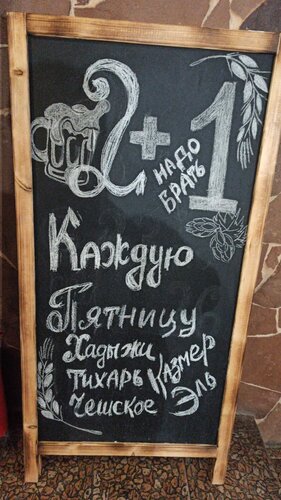 2+1
НАДО
БРАТЬ
Каждую
Пятницу
Хадыжи
Тихарь Казмер
Чешское Эль